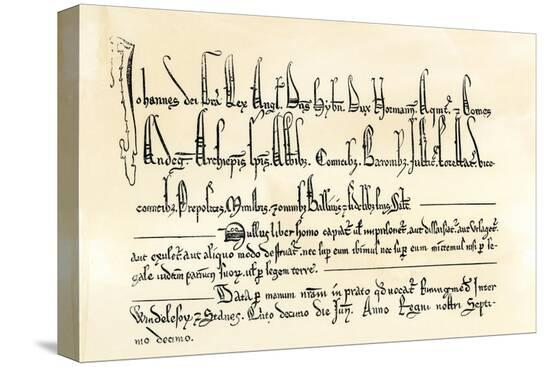 Johannes dei gra Rex Angl. Dns Hybn. Dux Normann. Aqut. z Comes
Andeg. Archiepis Epis. Abbibz. Comitibz. Baronibz. Justic. Forestar. Vice
comitibz. Prepositis. Ministris. z omnibz Ballivis. z fidelibz suis Salt.
Nullus liber homo capiat. ul imprisonet. aut dissaisiat. aut utlaget.
aut exulet. aut aliquo modo destruat. nec sup eum ibimus nec sup eum mittemus nisi p le-
gale iudicium parium suox. ul p legem terre.
Data p manum nram in prato qd vocat. Runingmed Inter
Windelesox z Stanes. Quito decimo die Jun. Anno Regni nostri Septi
mo decimo.